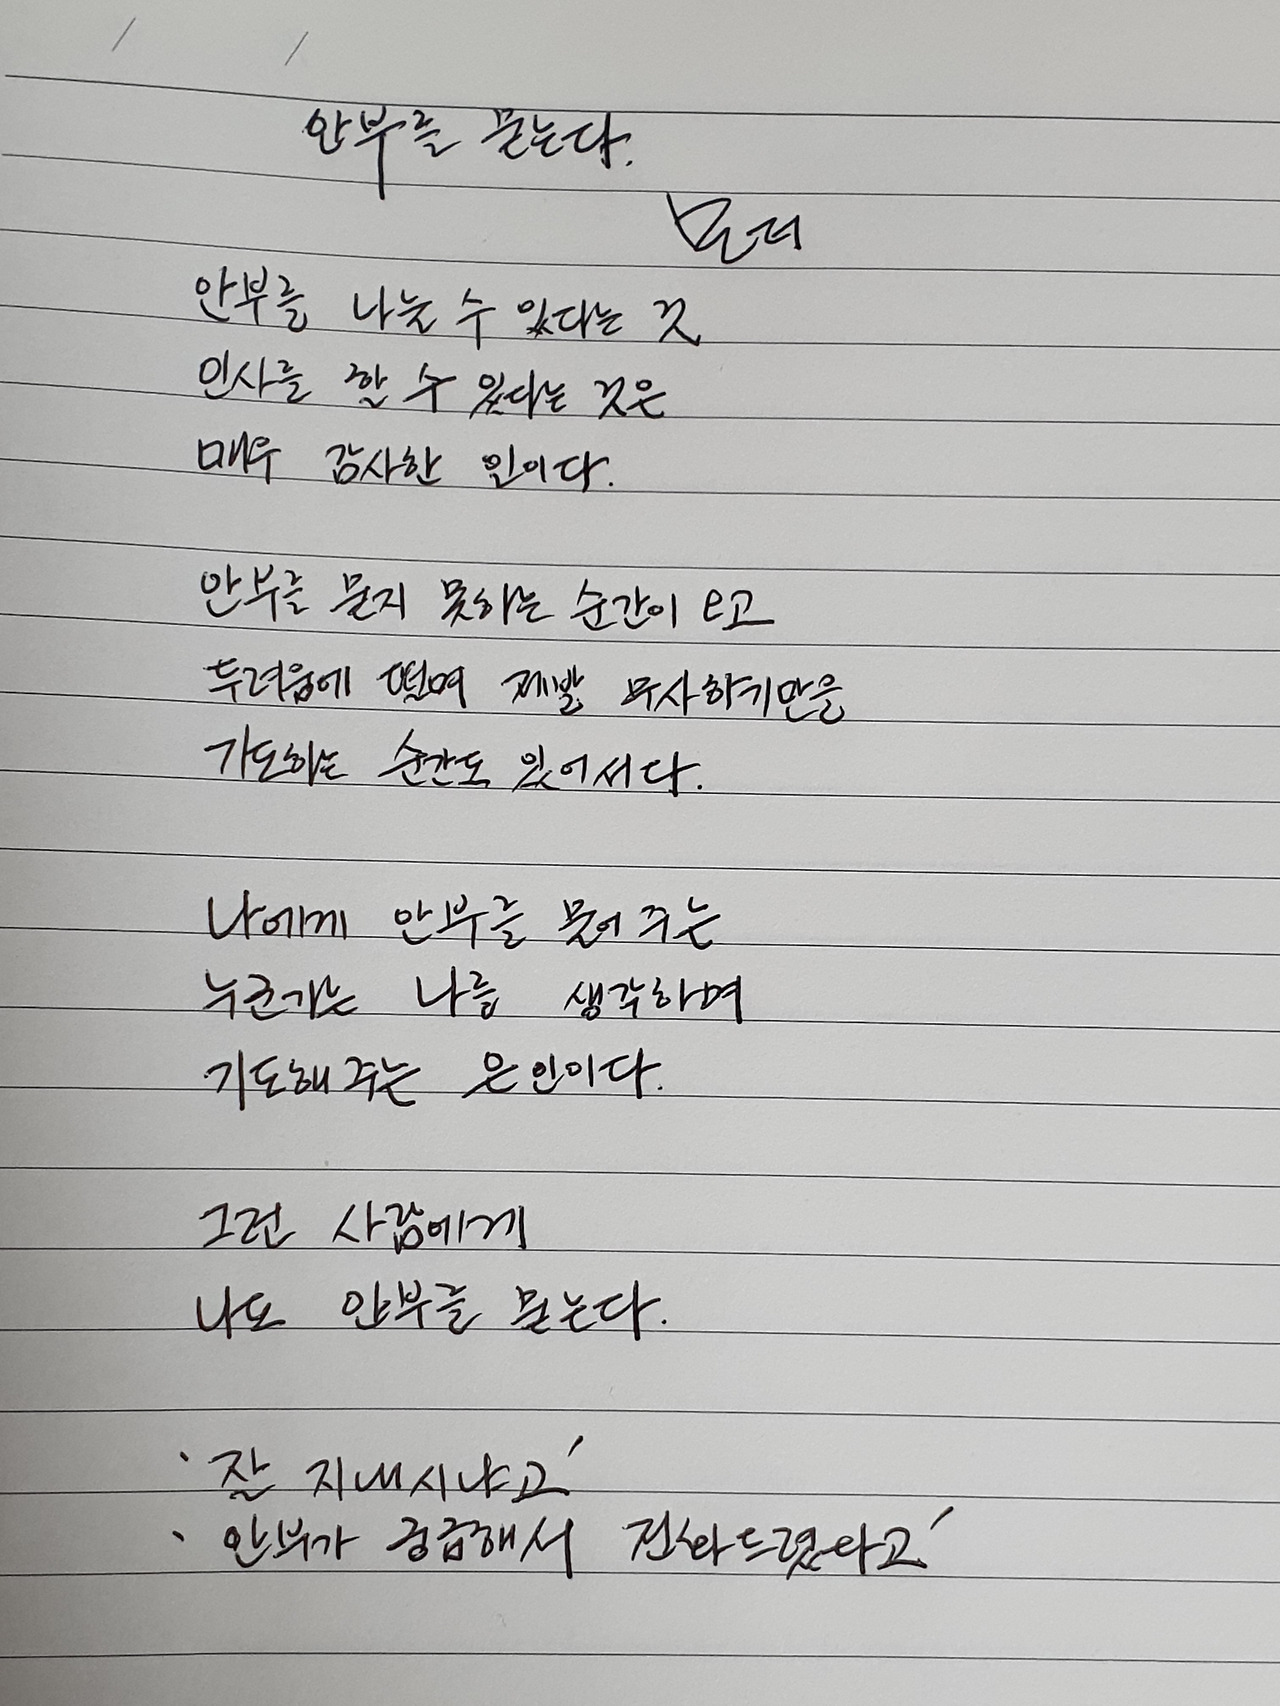 안부를 묻는다.
모더
안부를 나눌 수 있다는 것
인사를 할 수 있다는 것은
매우 감사한 일이다.
안부를 묻지 못하는 순간이 오고
두려움에 떨며 제발 무사하기만을
기도하는 순간도 있어서다.
나에게 안부를 물어 주는
누군가는 나를 생각하며
기도해 주는 은인이다.
그런 사람에게
나도 안부를 묻는다.
'잘 지내시냐고'
'안부가 궁금해서 전화드렸다고'